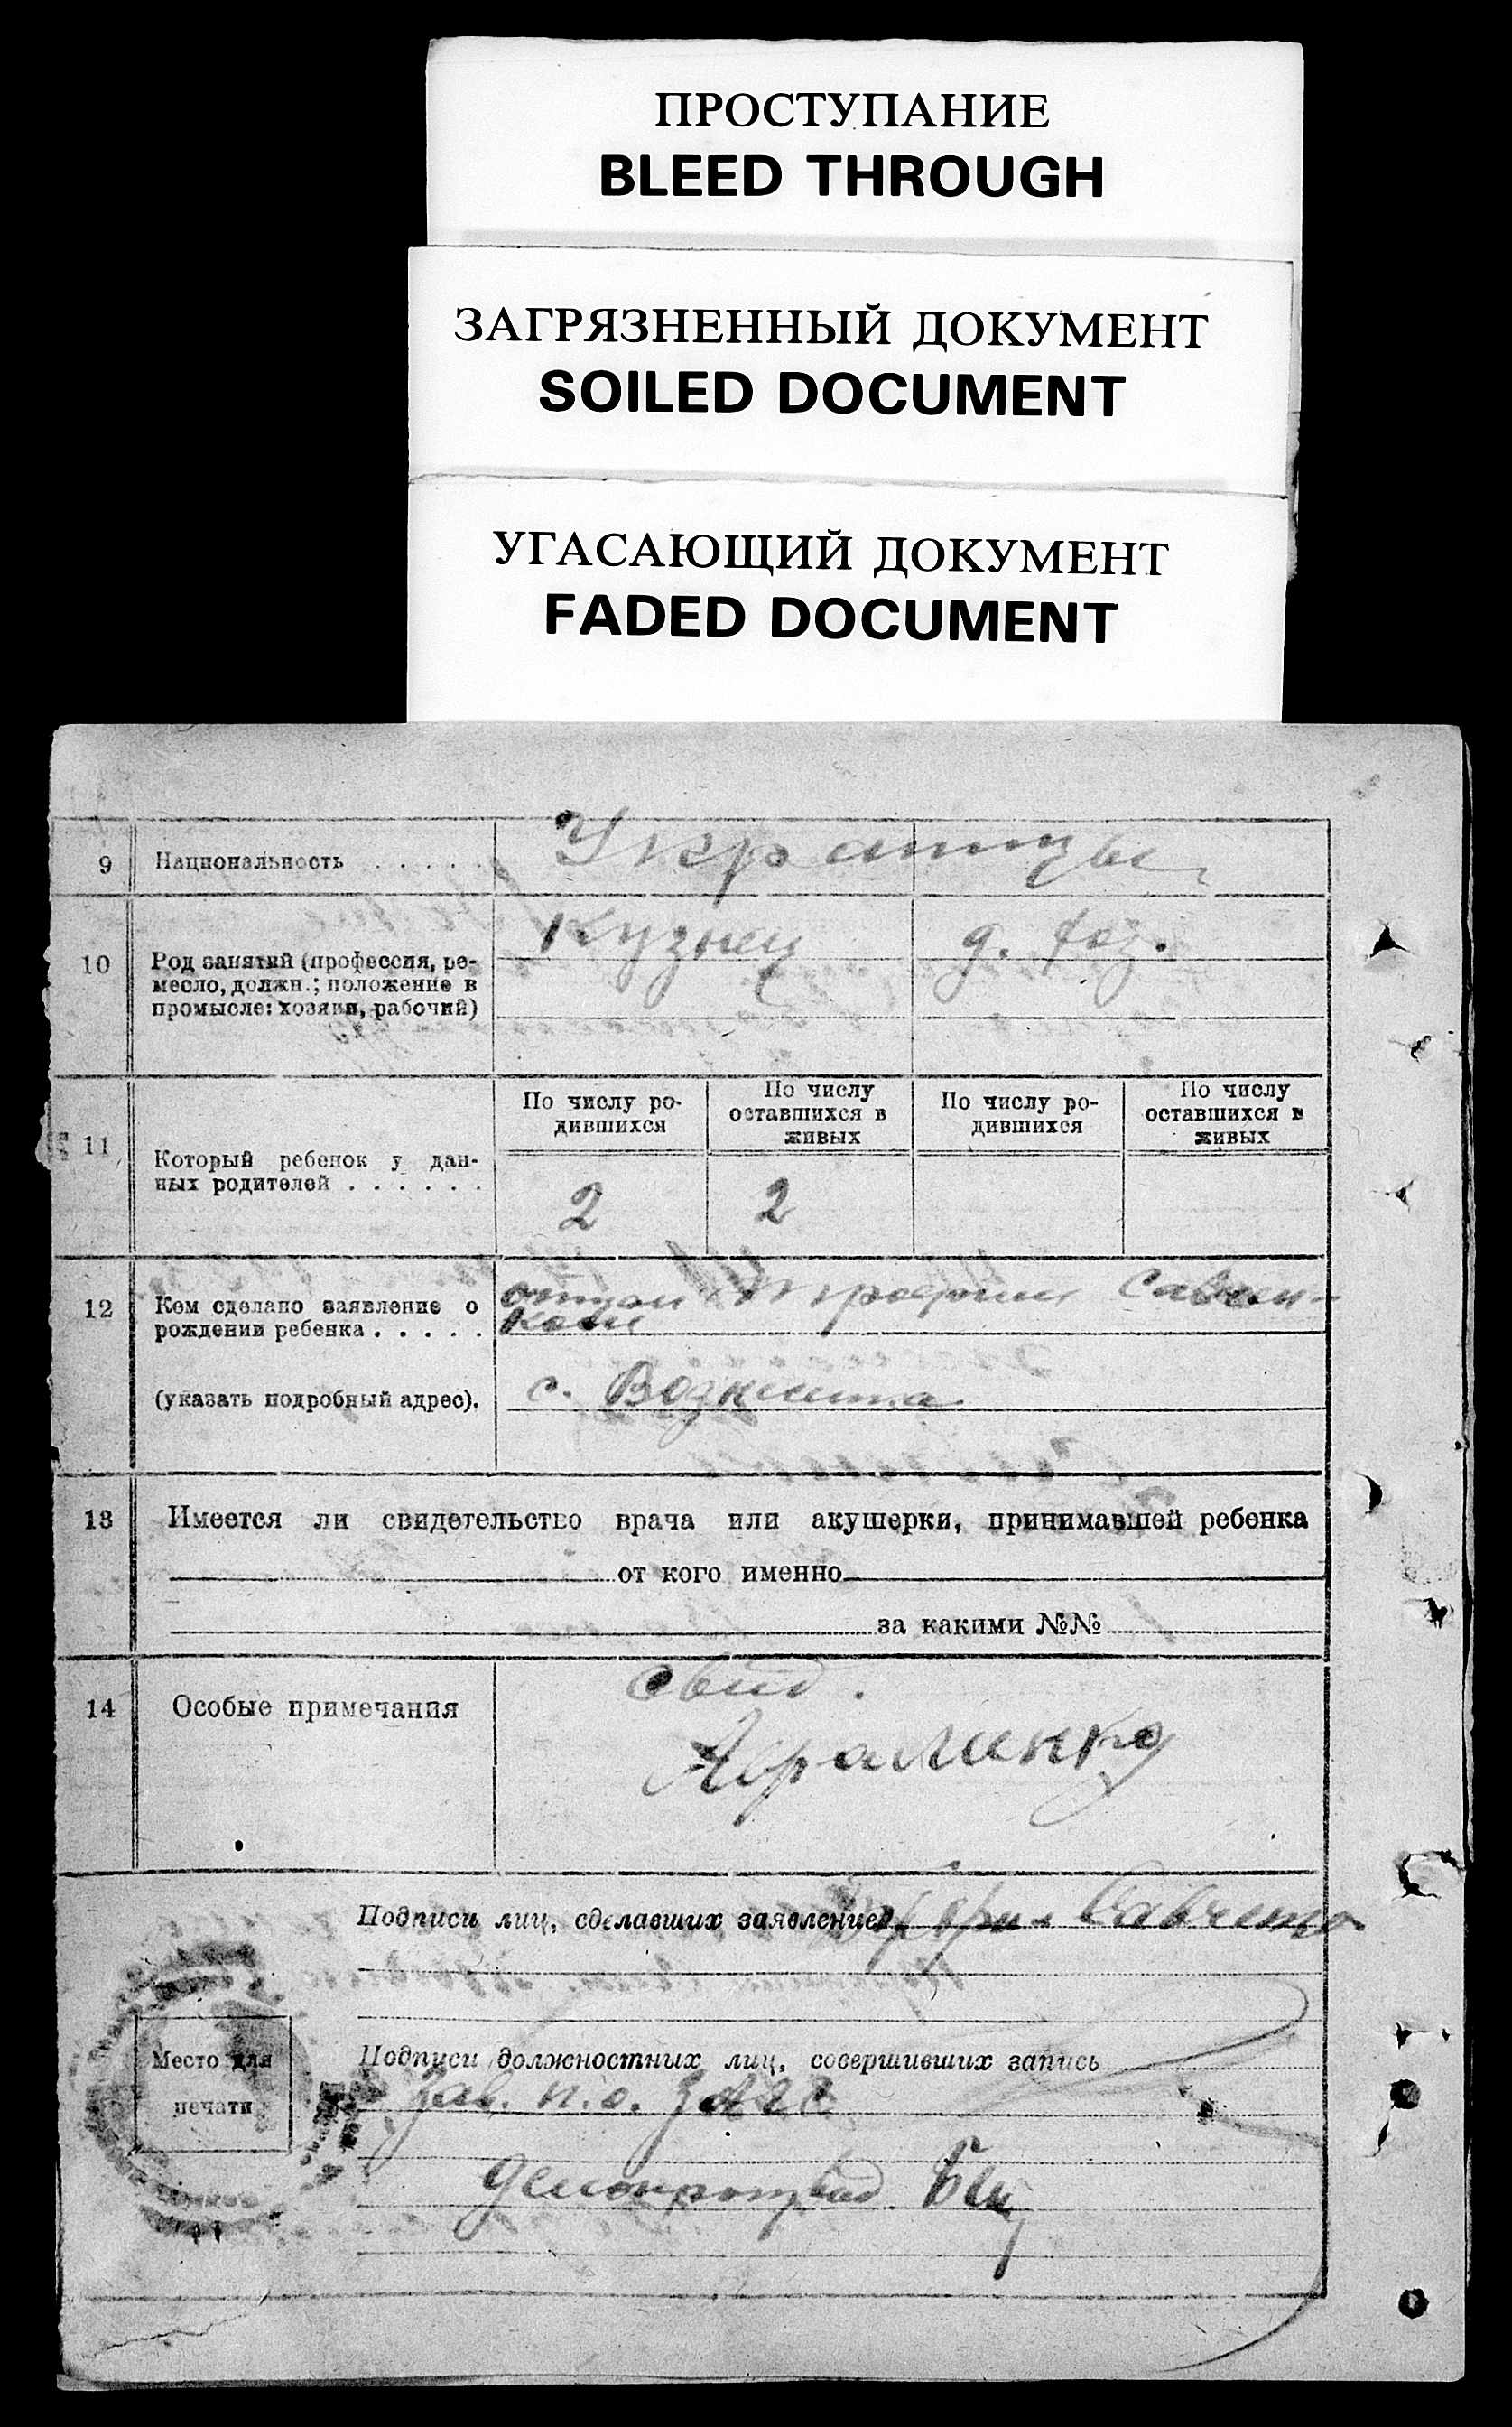 ПРОСТУПАНИЕ
BLEED THROUGH
ЗАГРЯЗНЕННЫЙ ДОКУМЕНТ
SOILED DOCUMENT
УГАСАЮЩИЙ ДОКУМЕНТ
FADED DOCUMENT
9 Национальность . . . . .
10 Род занятий (профессия, ре-
месло, должн.; положение в
промысле: хозяин, рабочий)
Кузнец д. хоз.
11 Который ребенок у дан-
ных родителей . . . . . .
По числу ро-
дившихся
По числу
оставшихся в
живых
По числу ро-
дившихся
По числу
оставшихся в
живых
2 2
12 Кем сделано заявление о
рождении ребенка . . . . .
отцом Савчен-
ком
(указать подробный адрес).
с.
13 Имеется ли свидетельство врача или акушерки, принимавшей ребенка
от кого именно
за какими №№
14 Особые примечания
свид.
Подписи лиц, сделавших заявление Савченко
Место для
печати
Подписи должностных лиц, совершивших запись
Зав. п.о. ЗАГС